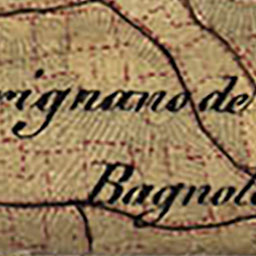 rignano de
Bagnol